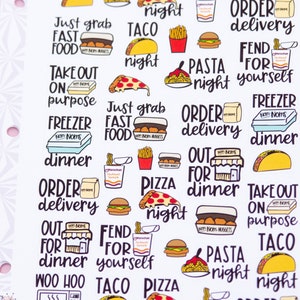 Just grab
FAST
FOOD
TACO
night
ORDER
delivery
TAKE OUT
ON
purpose
PASTA
night
FEND
FOR
yourself
FREEZER
dinner
Just grab
FAST
FOOD
ORDER
delivery
FREEZER
dinner
OUT
FOR
dinner
ORDER
delivery
PIZZA
night
TAKE OUT
ON
purpose
OUT
FOR
dinner
FEND
FOR
yourself
PASTA
night
TACO
night
WOO HOO
TACO
PIZZA